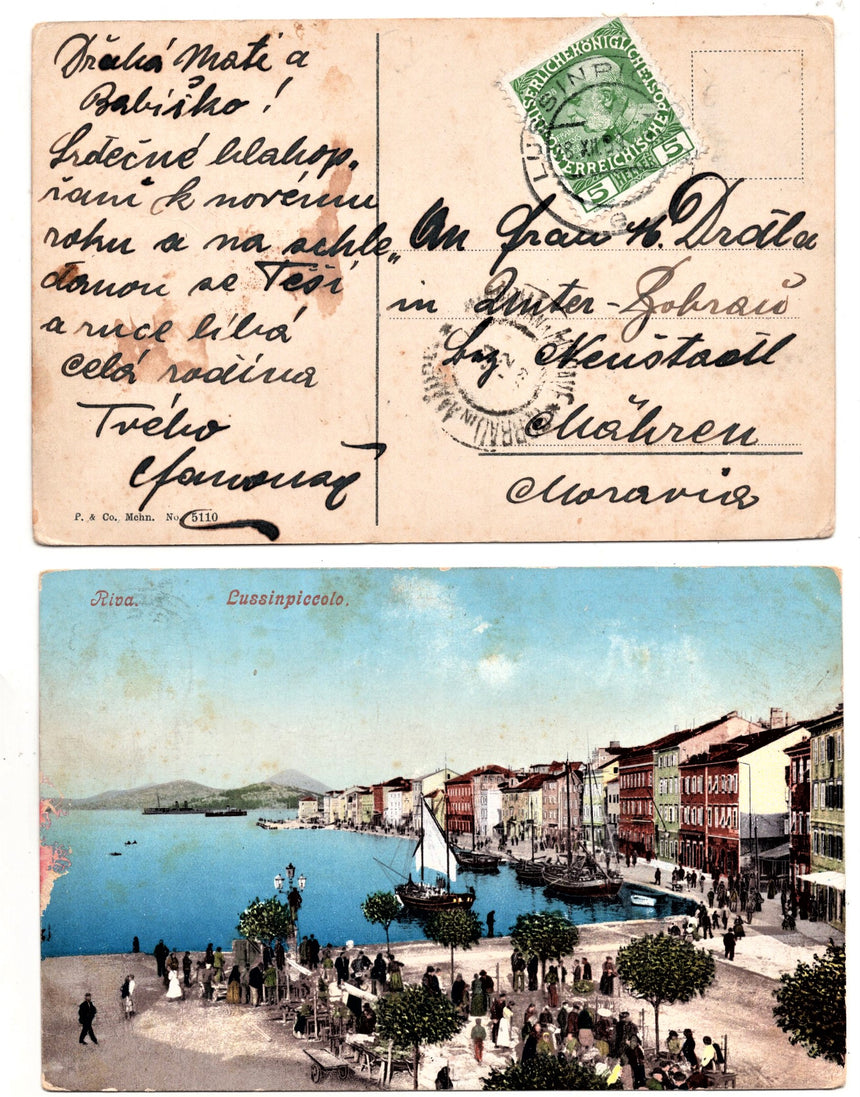 Drahá Mati a
Babičko!
Srdečné blahop„
řaní k novému
roku a na schle„
danou se Těší
a ruce líbá
celá rodina
Tvého
P. & Co. Mchn. No. 5110
KAISERLICHE KÖNIGLICHE
ÖSTERREICHISCHE POST
5 HELLER 5
LUSSINPICCOLO
An Frau H. Drdla
in Unter-Bobrau
bez Neustadtl
Mähren
Moravia
Riva. Lussinpiccolo.